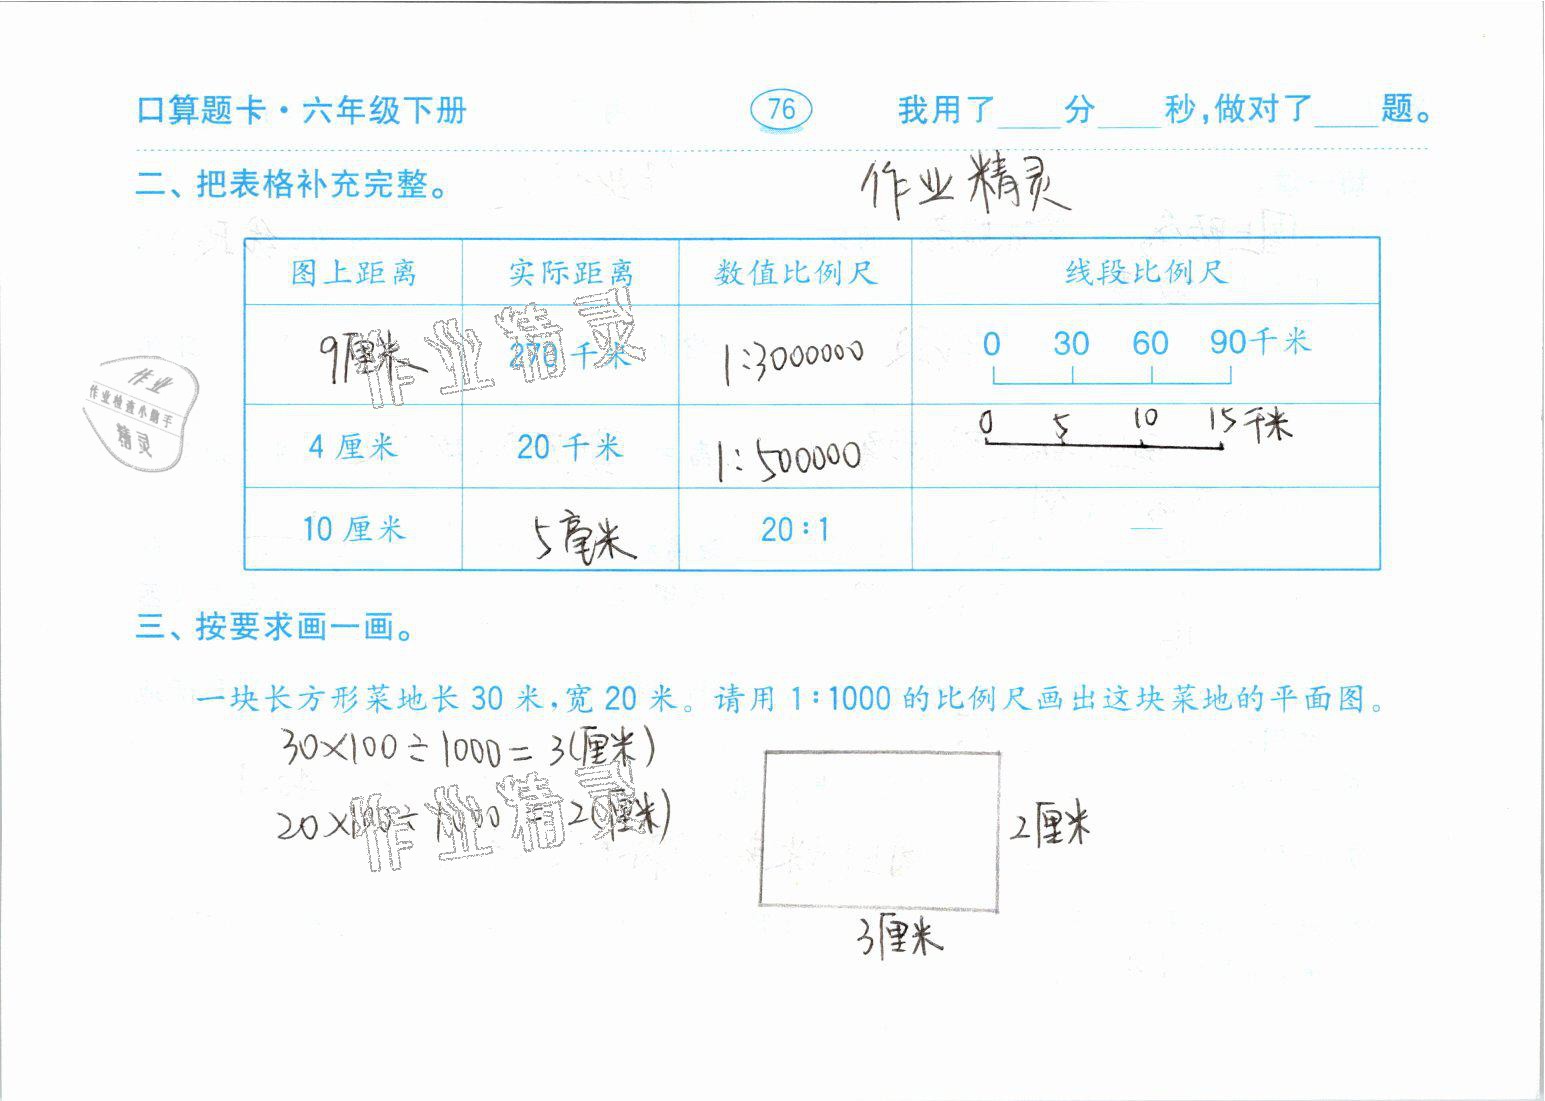 口算题卡·六年级下册 76 我用了____分____秒,做对了____题。
二、把表格补充完整。 作业精灵
图上距离 实际距离 数值比例尺 线段比例尺
9厘米 270千米 1:3000000 0 30 60 90千米
4厘米 20千米 1:500000 0 5 10 15千米
10厘米 5毫米 20:1 —
作业精灵
作业
作业检查小助手
精灵
三、按要求画一画。
一块长方形菜地长30米,宽20米。请用1:1000的比例尺画出这块菜地的平面图。
30×100÷1000=3(厘米)
20×100÷1000=2(厘米)
作业精灵
2厘米
3厘米